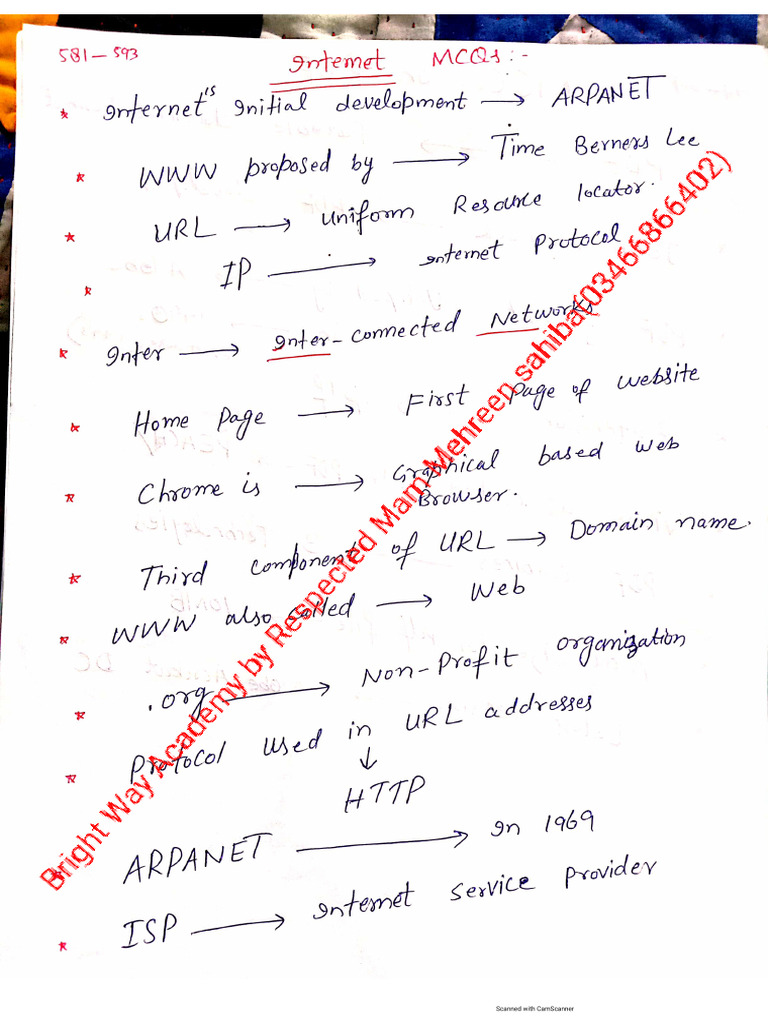 581 - 593
Internet MCQs :-
* Internet's Initial development → ARPANET
* WWW proposed by → Time Berners Lee
* URL → Uniform Resource locator.
* IP → Internet Protocol
* Inter → Inter-connected Networks
* Home Page → First Page of website
* Chrome is → Graphical based web
Browser.
* Third component of URL → Domain name.
* WWW also called → Web
* .org → Non-Profit organization
* Protocol used in URL addresses
↓
HTTP
* ARPANET → In 1969
* ISP → Internet Service Provider
Bright Way Academy by Respected Mam Mehreen sahiba(03466866402)
Scanned with CamScanner